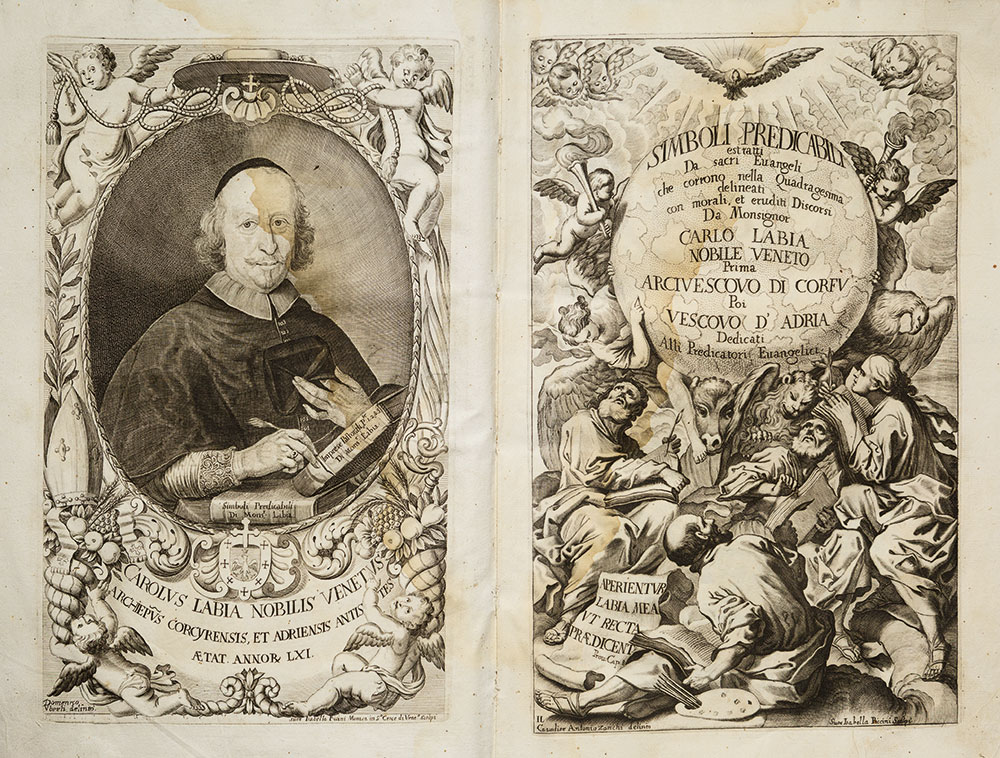 Simboli Predicabili
Di Monsr Labia
CAROLVS LABIA NOBILIS VENETVS
ARCHIEPVS CORCYRENSIS, ET ADRIENSIS ANTISTES
ÆTAT. ANNOR. LXI.
Domenico
delineò
Suor Isabella Picini Monaca in Sta Croce di Veneª Sculpi
SIMBOLI PREDICABILI
estratti
Da sacri Euangeli
che corrono nella Quadragesima
delineati
con morali, et eruditi Discorsi
Da Monsignor
CARLO LABIA
NOBILE VENETO
Prima
ARCIVESCOVO DI CORFV
Poi
VESCOVO D' ADRIA
Dedicati
Alli Predicatori Euangelici
APERIENTVR
LABIA MEA
VT RECTA
PRÆDICENT
Prou. Cap.
IL
Caualier Antonio Zanchi delineò
Suor Isabella Piccini Sculpì